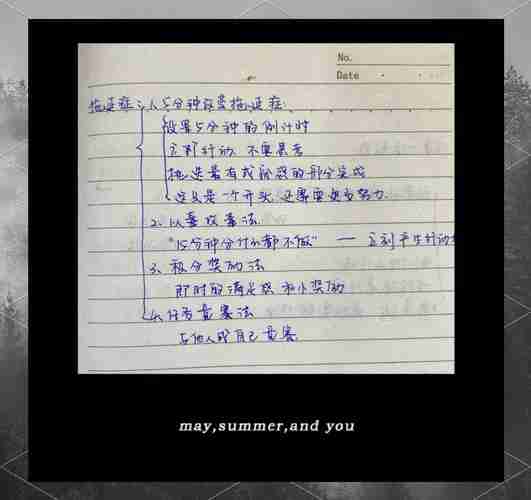 No.
Date
拖延症：1、5分钟改变拖延症
设置5分钟的倒计时
立即行动 不要思考
挑选最有成就感的部分完成
这只是一个开头，还需要更多努力
2、以毒攻毒法
"15分钟分什么都不做" — 立刻产生行动
3、积分奖励法
即时的满足感 和小奖励
4、任务竞赛法
与他人或自己竞赛
may,summer,and you